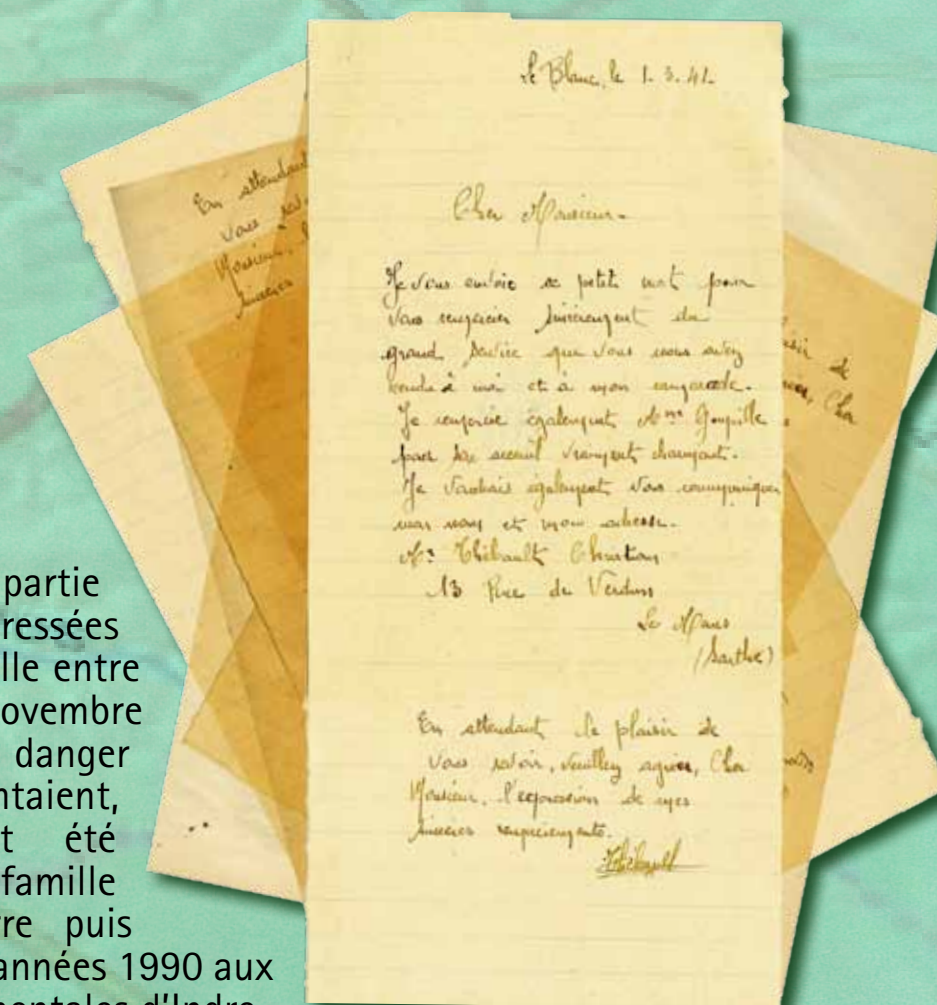 Le Blanc, le 1.3.41.
Cher Monsieur.
Je vous envoie ce petit mot pour
vous remercier sincèrement du
grand service que vous nous avez
rendu à moi et à mon camarade.
Je remercie également Mme Goupille
pour son accueil vraiment charmant.
Je voudrais également vous communiquer
mon nom et mon adresse.
Mr Thibault Christian
13 Rue de Verdun
Le Mans
(Sarthe)
En attendant le plaisir de
vous revoir, veuillez agréer, Cher
Monsieur, l'expression de mes
sincères remerciements.
Thibault
En attendant
vous
Monsieur,
sincères
de
Cher
partie
ressées
lle entre
ovembre
danger
ntaient,
t été
famille
re puis
années 1990 aux